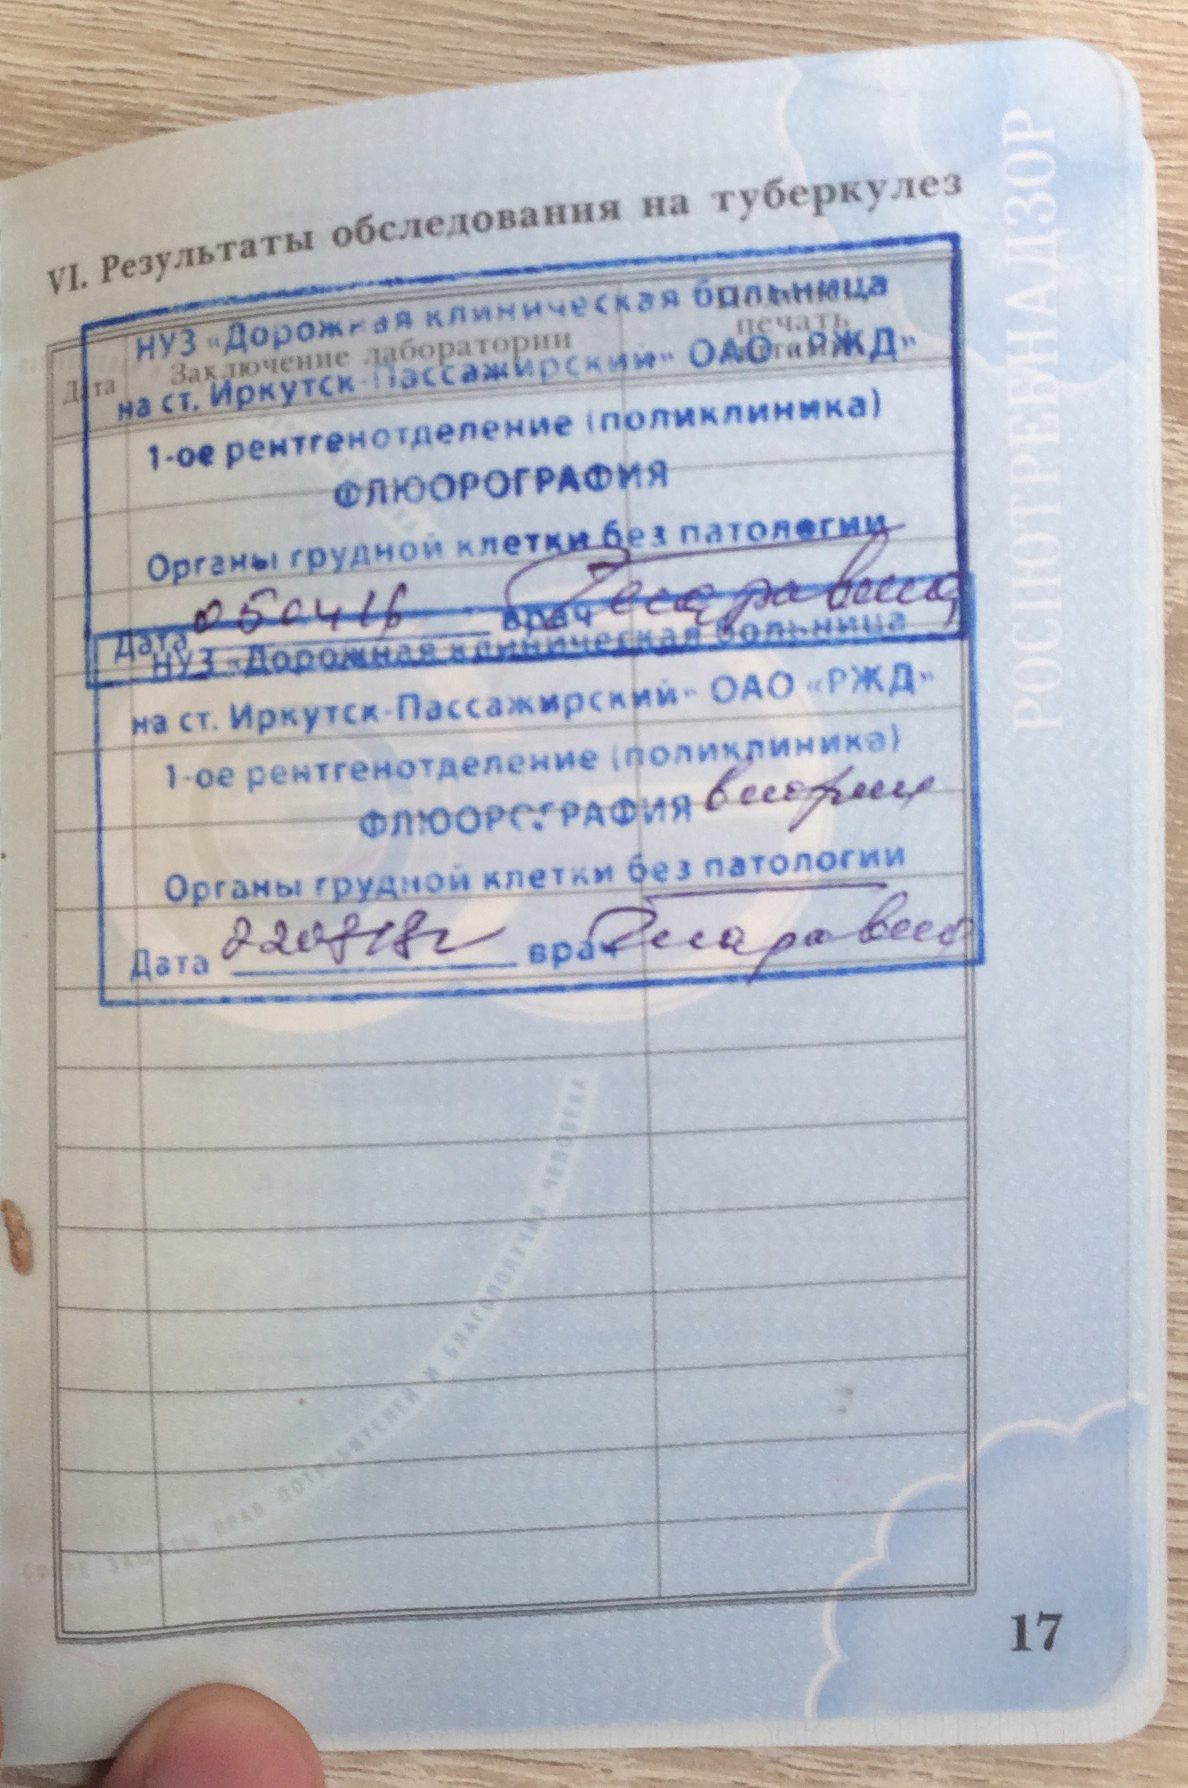 VI. Результаты обследования на туберкулез
Дата
Заключение лаборатории
печать
НУЗ «Дорожная клиническая больница
на ст. Иркутск-Пассажирский" ОАО «РЖД"
1-ое рентгенотделение (поликлиника)
ФЛЮОРОГРАФИЯ
Органы грудной клетки без патологии
Дата 050416 врач
НУЗ «Дорожная клиническая больница
на ст. Иркутск-Пассажирский" ОАО «РЖД"
1-ое рентгенотделение (поликлиника)
ФЛЮОРОГРАФИЯ
Органы грудной клетки без патологии
Дата врач
СФЕРЕ ЗАЩИТЫ ПРАВ ПОТРЕБИТЕЛЕЙ И БЛАГОПОЛУЧИЯ ЧЕЛОВЕКА
РОСПОТРЕБНАДЗОР
17